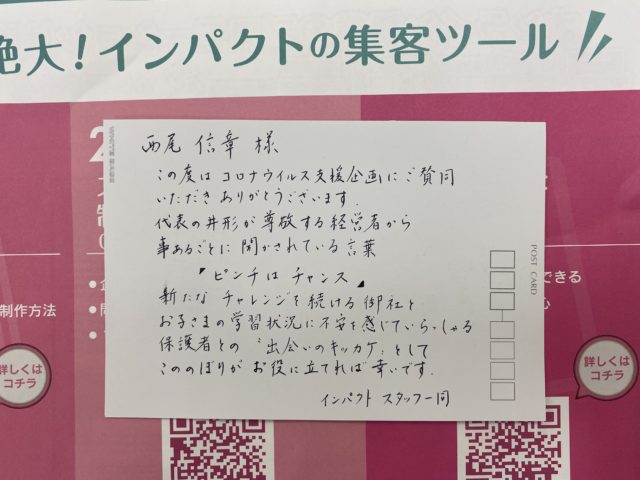 絶大！インパクトの集客ツール
西尾 信章 様
この度は コロナウイルス支援企画にご賛同
いただき ありがとうございます.
代表の井形が尊敬する経営者から
事あるごとに 聞かされている言葉
『ピンチは チャンス』
新たな チャレンジを続ける御社と
お子さまの学習状況に不安を感じていらっしゃる
保護者との "出会いのキッカケ"として
こののぼりが お役に立てれば幸いです.
インパクト スタッフ一同
POST CARD
制作方法
できる
詳しくは
コチラ
詳しくは
コチラ